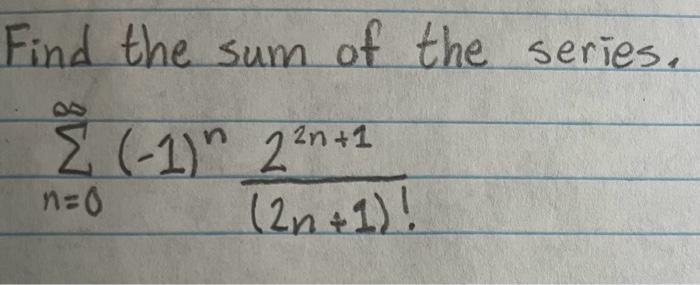 Find the sum of the series.
∞
Σ (-1)ⁿ 2²ⁿ⁺¹
n=0 (2n+1)!